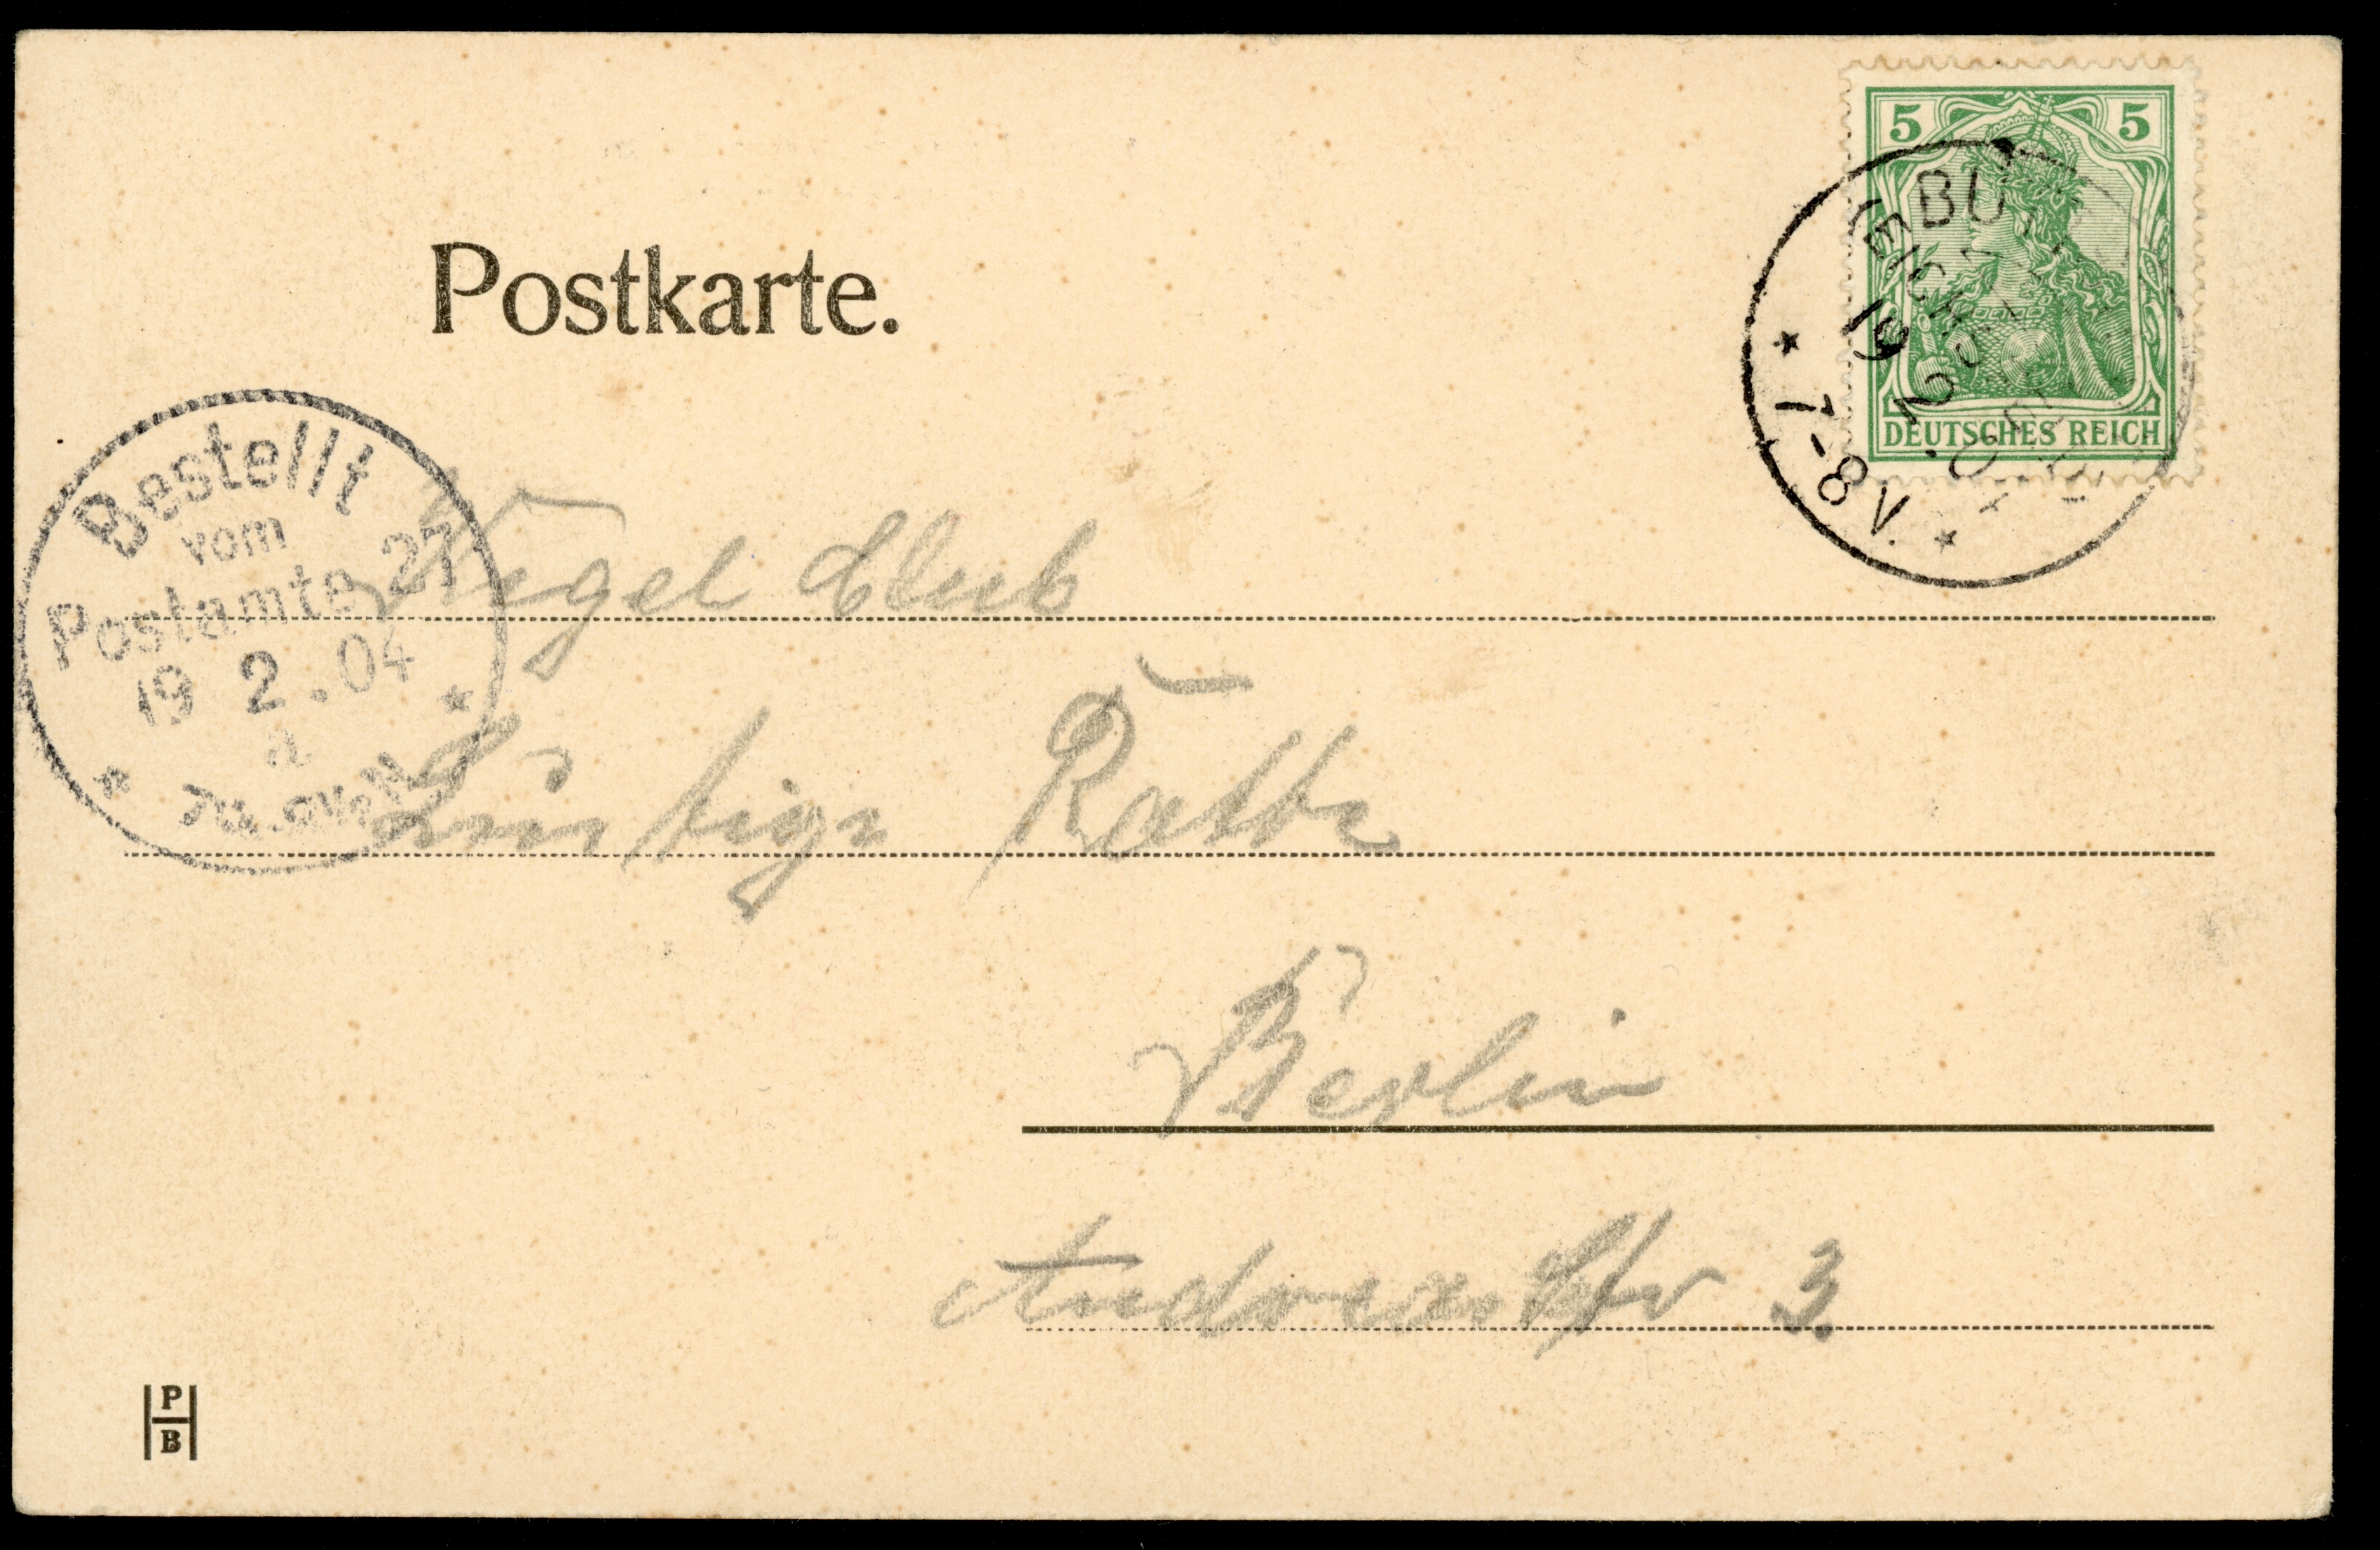 Postkarte.
5 5
DEUTSCHES REICH
19. 2. 0
7-8 N.
Bestellt
vom
Postamte 27
19 2.04
Club
Lustige Ratte
Berlin
Andreasstr 3.
P
B